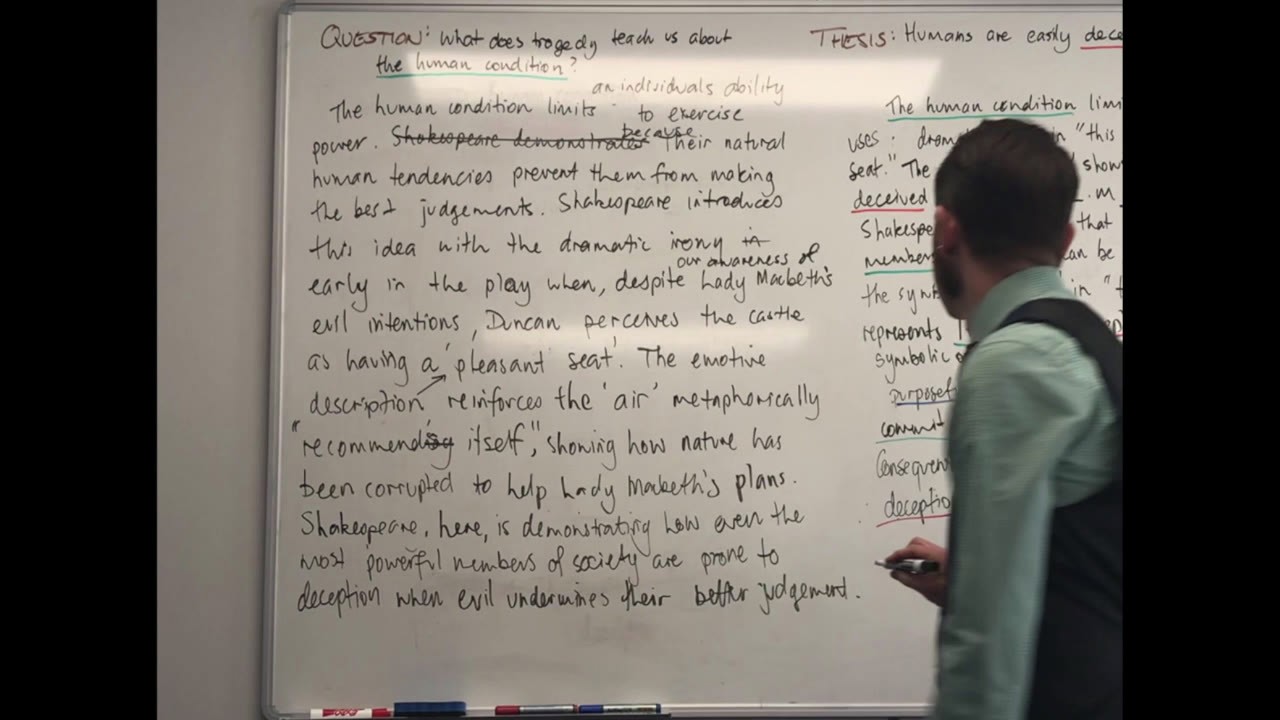 QUESTION: What does tragedy teach us about
the human condition?
an individuals ability
The human condition limits to exercise
because
power. Shakespeare demonstrates Their natural
human tendencies prevent them from making
the best judgements. Shakespeare introduces
this idea with the dramatic irony in
our awareness of
early in the play when, despite Lady Macbeth's
evil intentions, Duncan perceives the castle
as having a 'pleasant seat'. The emotive
description reinforces the 'air' metaphorically
"recommending itself", showing how nature has
been corrupted to help Lady Macbeth's plans.
Shakespeare, here, is demonstrating how even the
most powerful members of society are prone to
deception when evil undermines their better judgement.
THESIS: Humans are easily dece
The human condition limi
uses: dram "this
seat." The show
deceived
Shakespe that
member can be
the sym in
represents
symbolic
purpose
commit
Consequen
deceptio